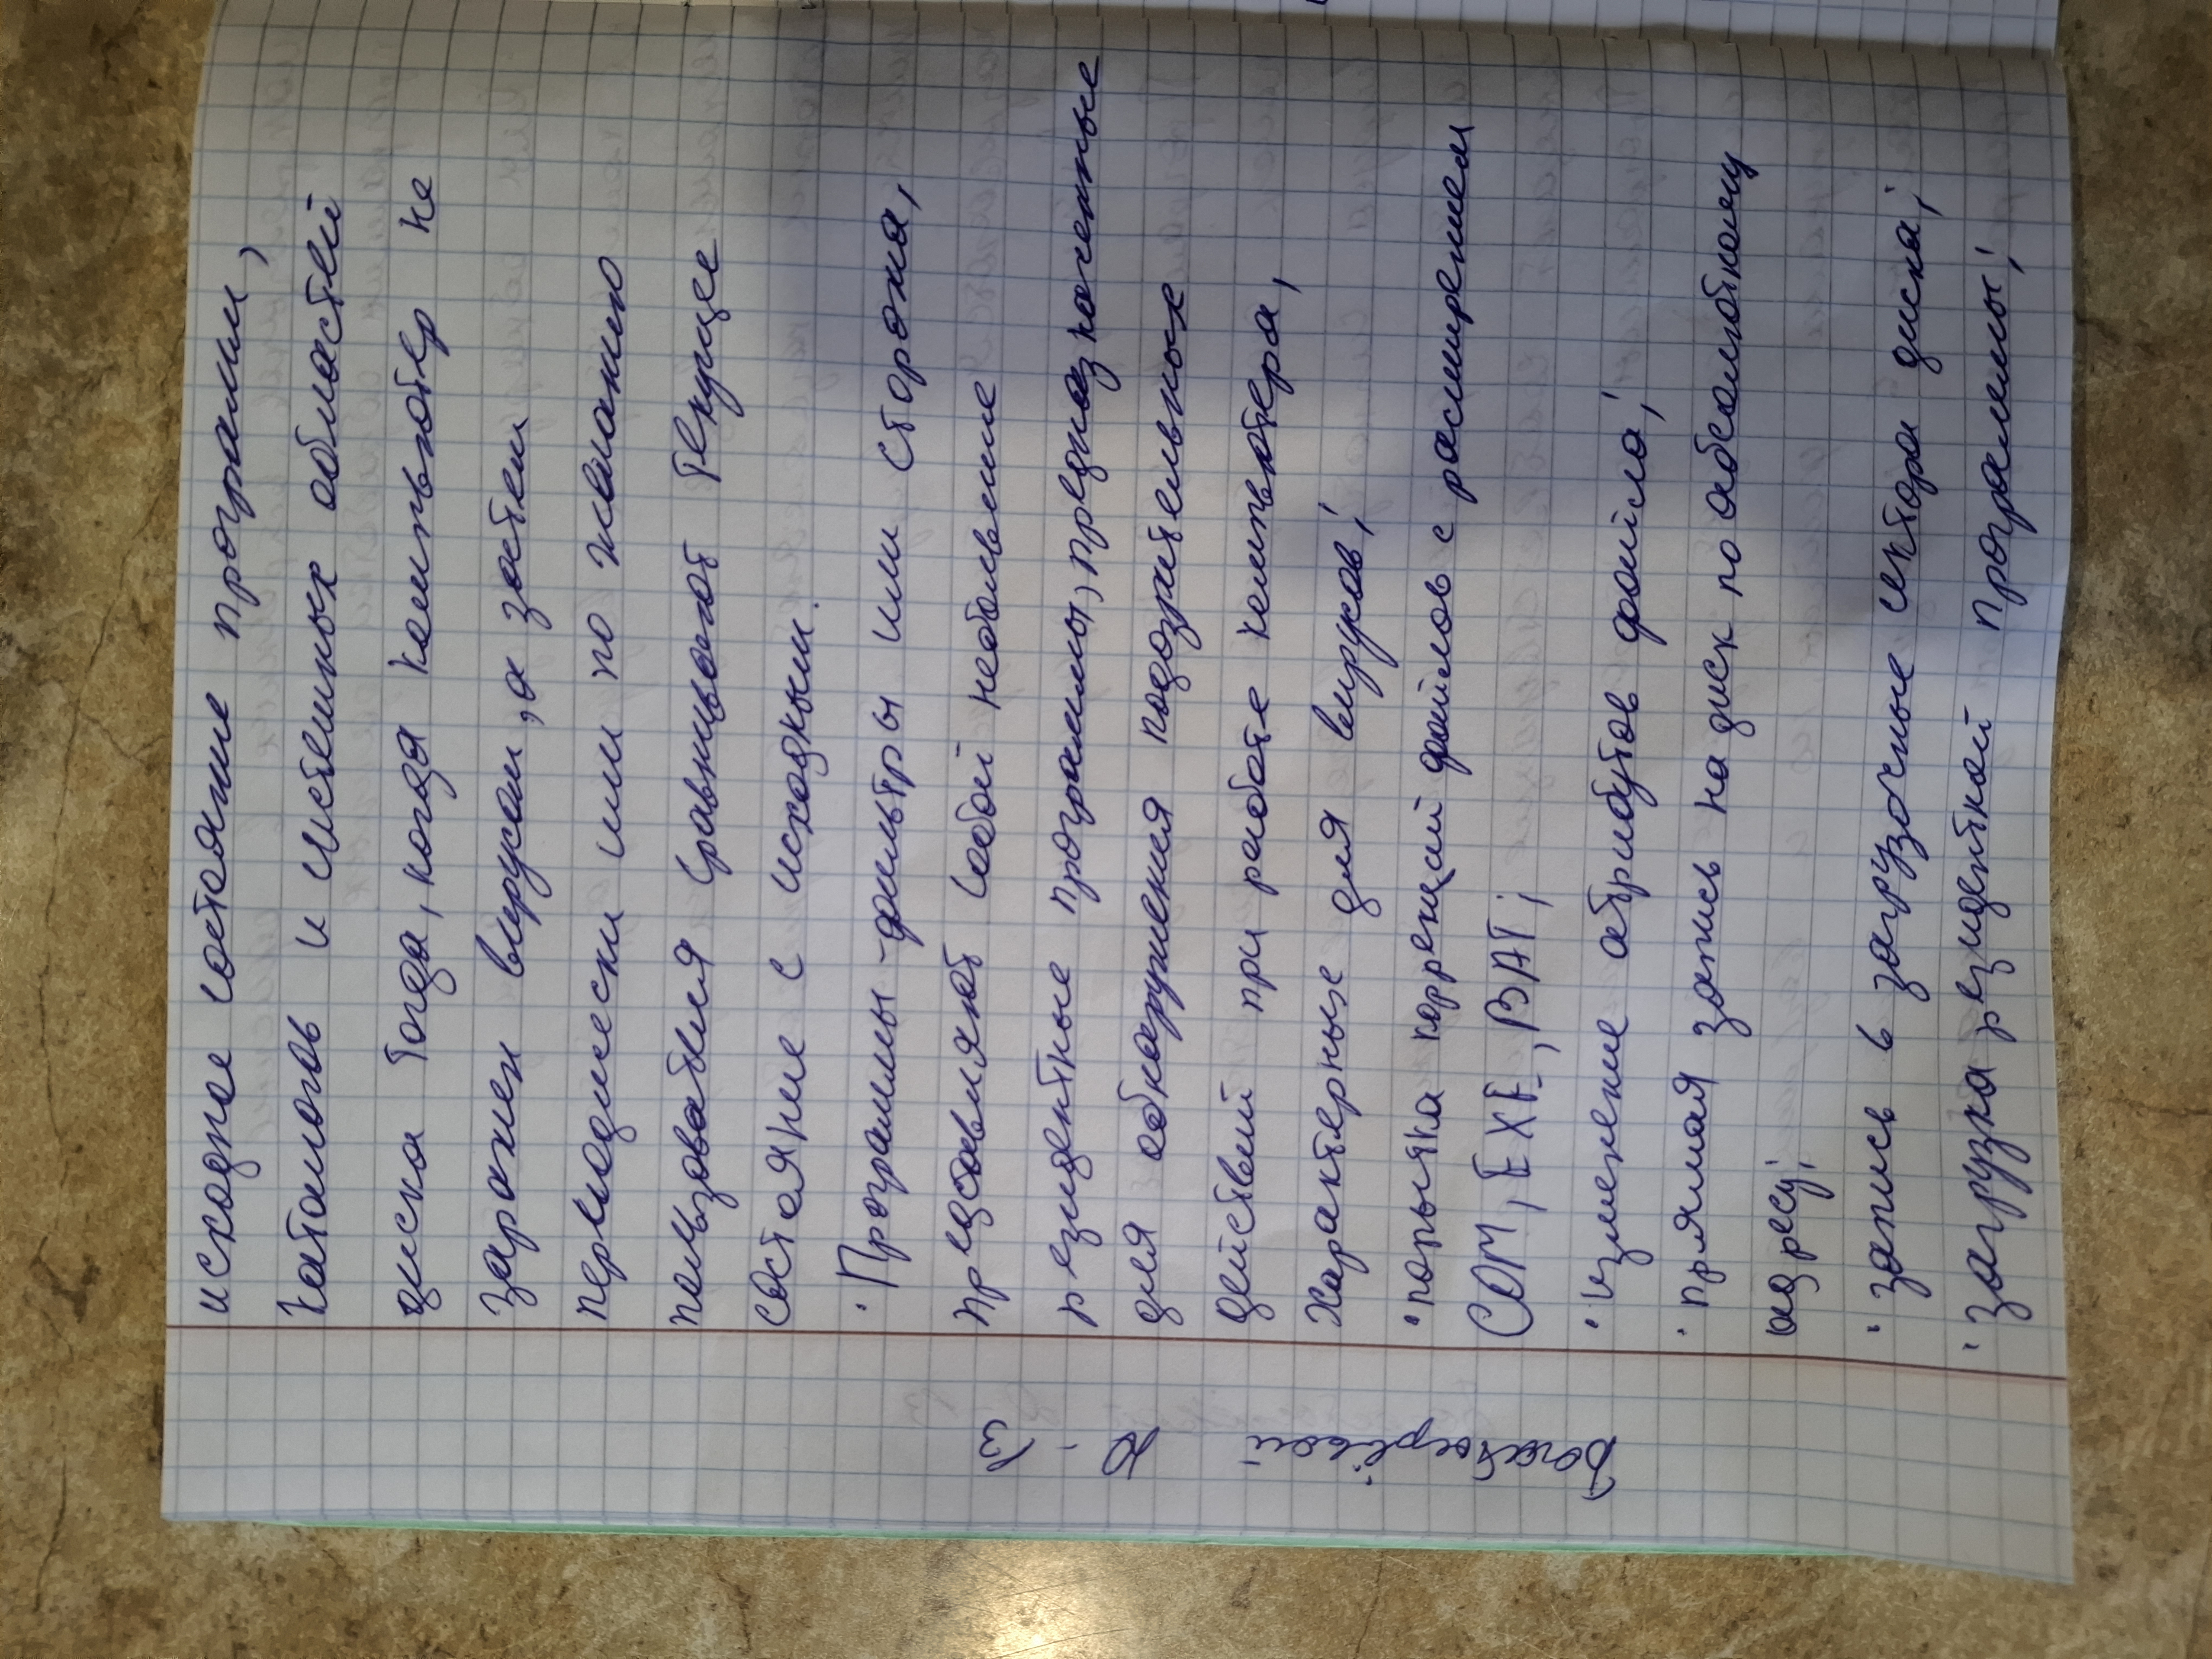 исходное состояние программ,
каталогов и системных областей
диска тогда, когда компьютер не
заражен вирусом, а затем
периодически или по желанию
пользователя сравнивают текущее
состояние с исходным.
· Программы-фильтры или сторожа,
представляют собой небольшие
резидентные программы, предназначенные
для обнаружения подозрительных
действий при работе компьютера,
характерных для вирусов;
· попытка коррекций файлов с расширением
COM, EXE, BAT;
· изменение атрибутов файла;
· прямая запись на диск по абсолютному
адресу;
· запись в загрузочные сектора диска;
· загрузка резидентной программы;